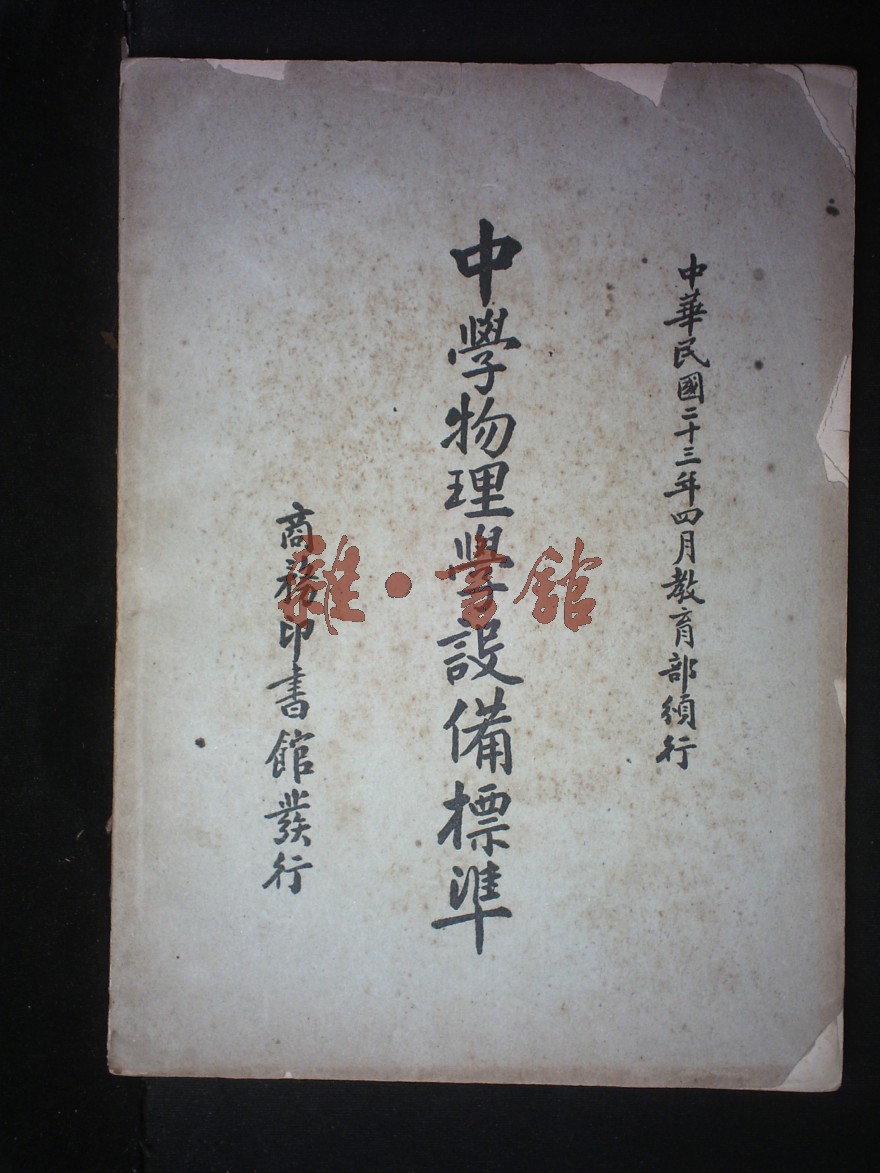 中華民國二十三年四月教育部頒行
中學物理學設備標準
商務印書館發行
雜·書館